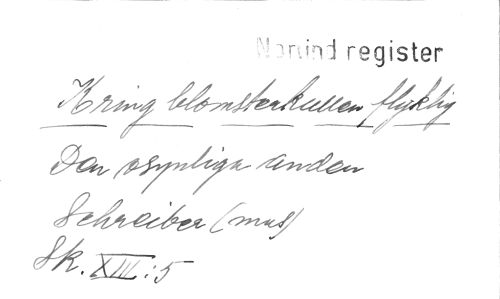 Norlind register
Kring blomsterkullen flyktig
Den osynliga anden
Schreiber (mus)
Sk. XIII:5